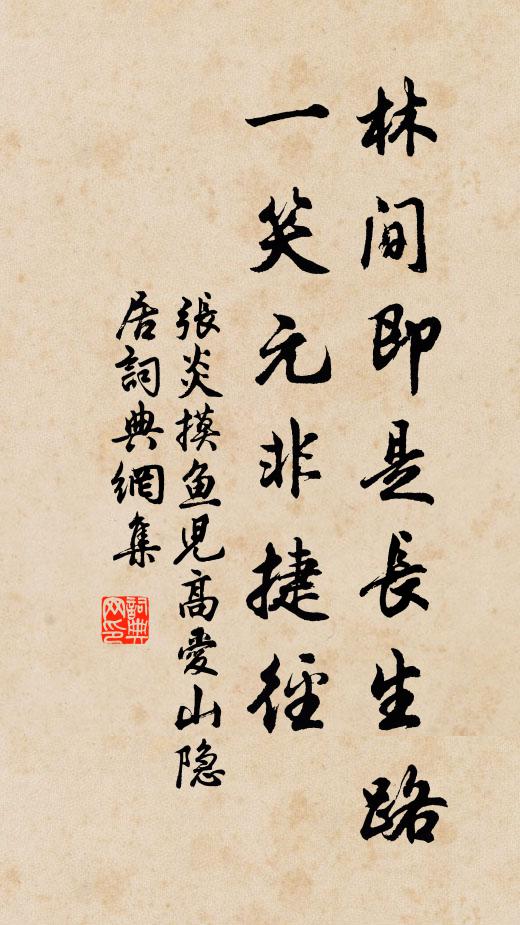 林間即是長生路
一笑元非捷徑
張炎摸鱼兒高愛山隐
居詞典網集
詞典
网印